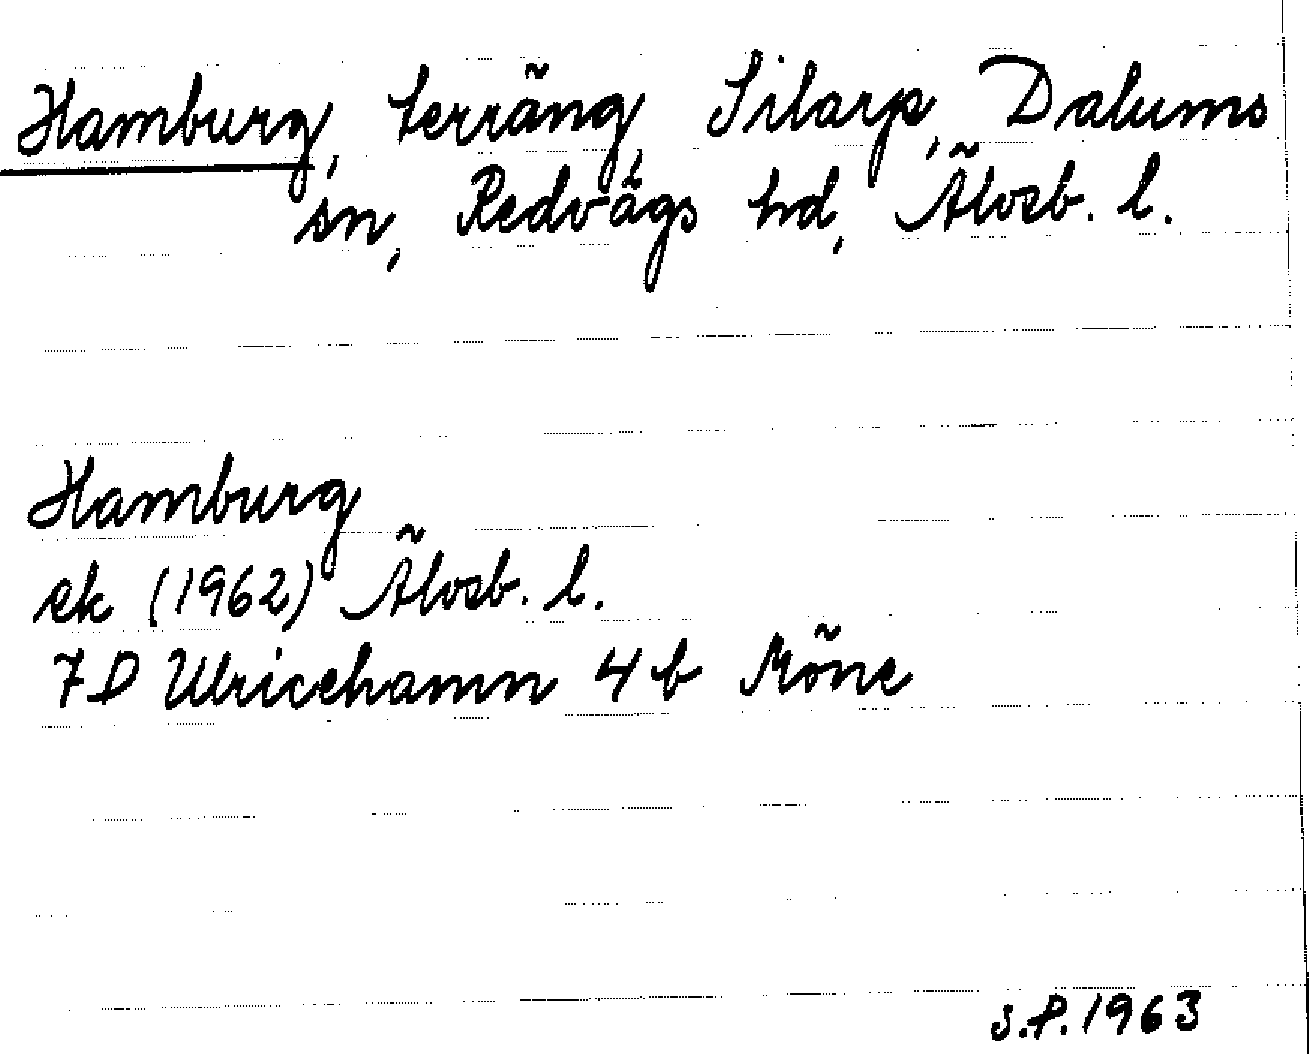 Hamburg, terräng, Silarp, Dalums
sn, Redvägs hd, Älvsb. l.
Hamburg
ek (1962) Älvsb. l.
7D Ulricehamn 4 b Möne
S.P. 1963